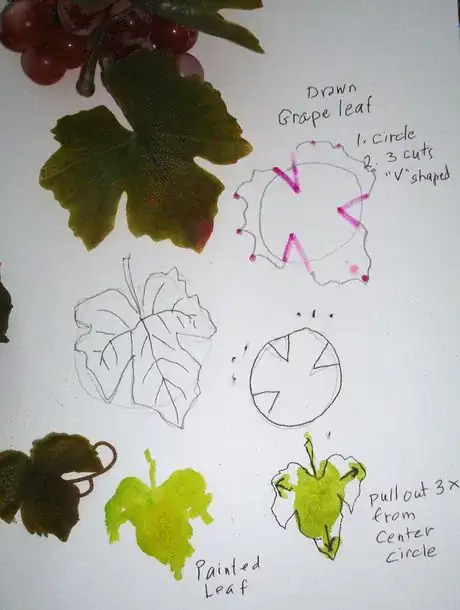 Drawn
Grape leaf
1. Circle
2. 3 cuts
"V" shaped
pull out 3x
from
center
circle
Painted
Leaf